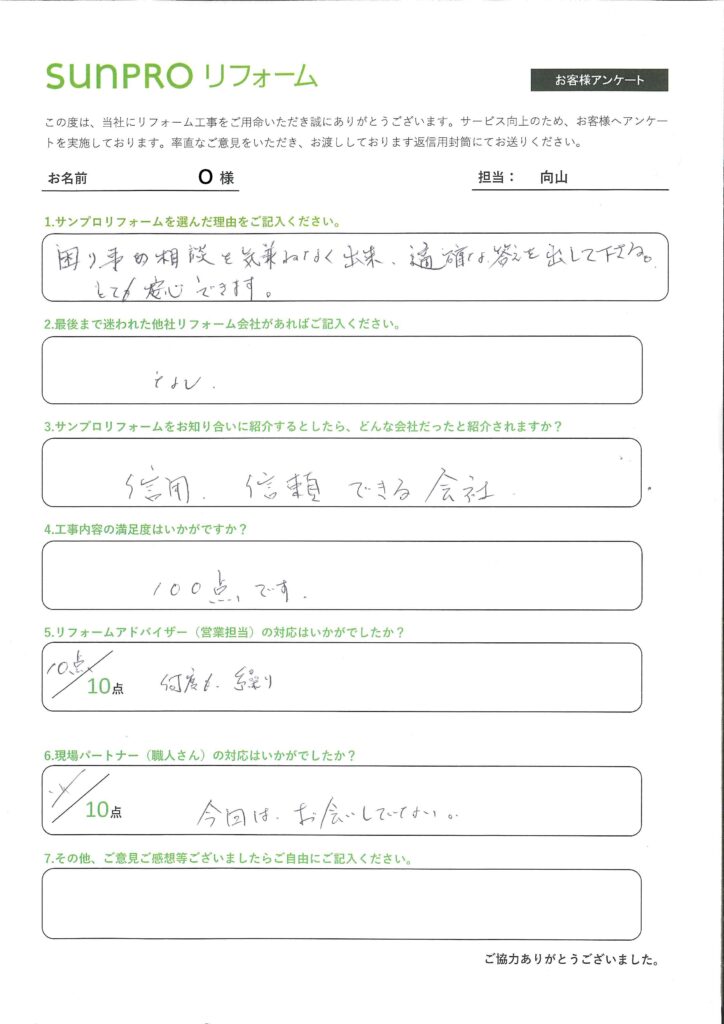 sunPRO リフォーム
お客様アンケート
この度は、当社にリフォーム工事をご用命いただき誠にありがとうございます。サービス向上のため、お客様へアンケー
トを実施しております。率直なご意見をいただき、お渡ししております返信用封筒にてお送りください。
お名前 O 様
担当： 向山
1.サンプロリフォームを選んだ理由をご記入ください。
困り事の相談を気兼ねなく出来、適確な答えを出して下さる。
とても安心できます。
2.最後まで迷われた他社リフォーム会社があればご記入ください。
なし.
3.サンプロリフォームをお知り合いに紹介するとしたら、どんな会社だったと紹介されますか？
信用、信頼できる会社
4.工事内容の満足度はいかがですか？
100点です.
5.リフォームアドバイザー（営業担当）の対応はいかがでしたか？
10点/10点 何度も、繰り
6.現場パートナー（職人さん）の対応はいかがでしたか？
/10点 今回は、お会いしていない。
7.その他、ご意見ご感想等ございましたらご自由にご記入ください。
ご協力ありがとうございました。